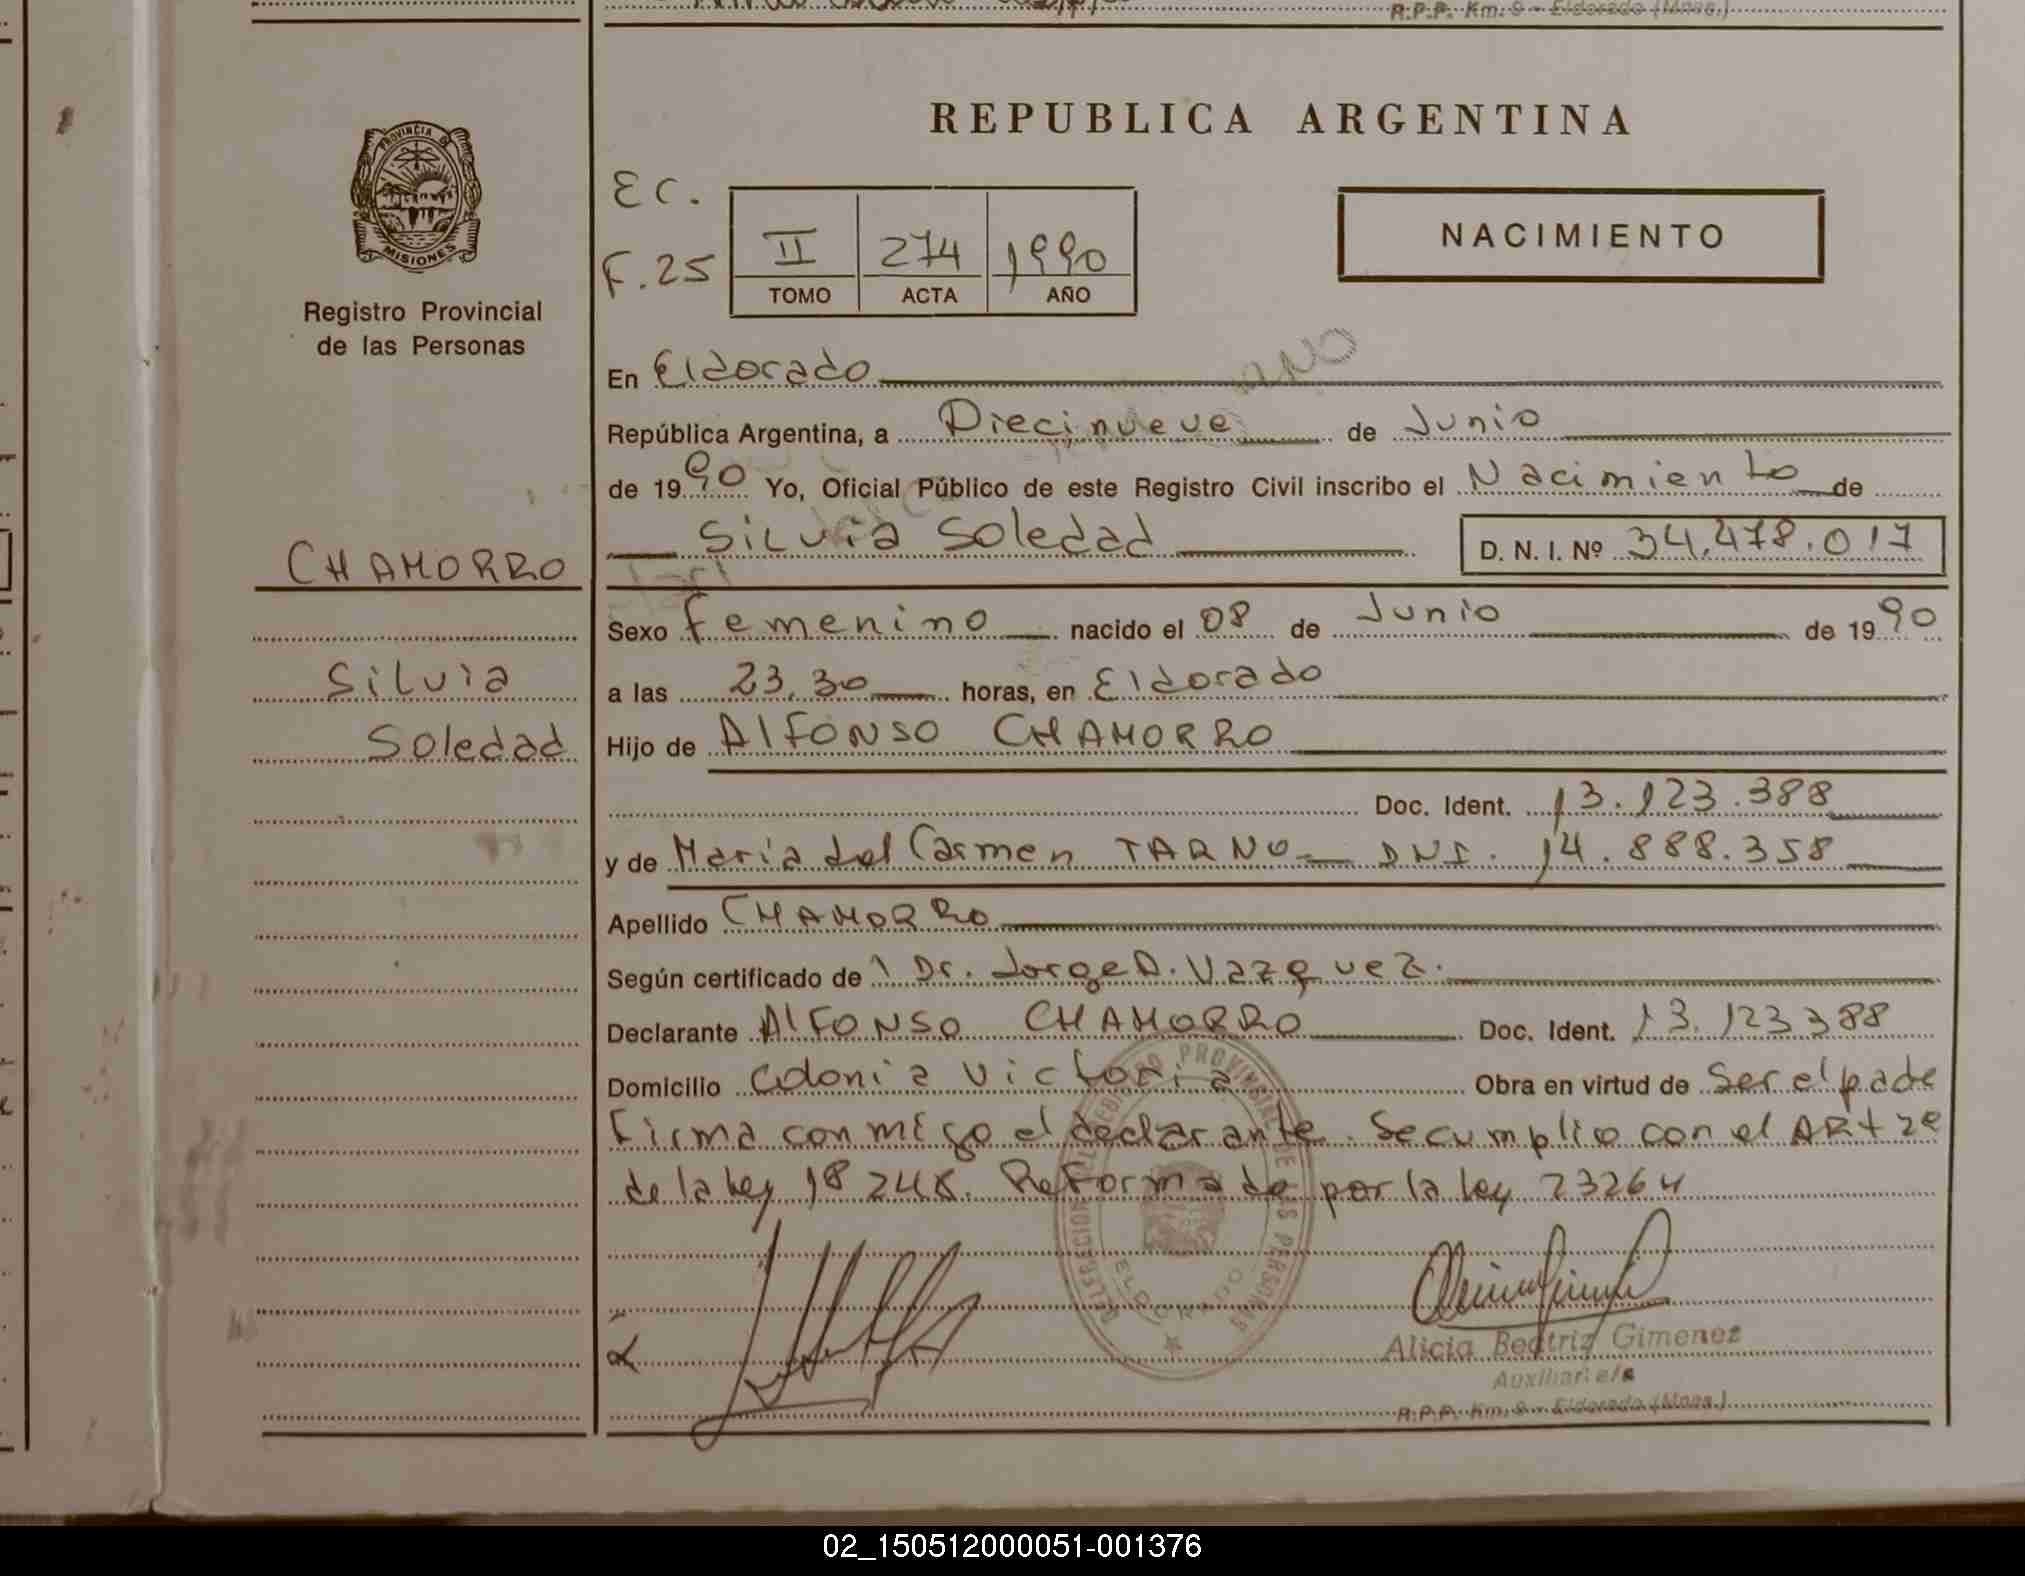 R.P.P. Km. 9 - Eldorado (Mnes.)
REPUBLICA ARGENTINA
PROVINCIA DE
MISIONES
Registro Provincial
de las Personas
EC.
F.25
II 274 1990
TOMO ACTA AÑO
NACIMIENTO
En Eldorado
República Argentina, a Diecinueve de Junio
de 1990 Yo, Oficial Público de este Registro Civil inscribo el Nacimiento de
Silvia Soledad D. N. I. Nº 34.478.017
CHAMORRO
Silvia
Soledad
Sexo Femenino nacido el 08 de Junio de 1990
a las 23.30 horas, en Eldorado
Hijo de Alfonso CHAMORRO
Doc. Ident. 13.123.388
y de Maria del Carmen TARNO DNI. 14.888.358
Apellido CHAMORRO
Según certificado de Dr. Jorge A. Vazquez.
Declarante Alfonso CHAMORRO Doc. Ident. 13.123388
Domicilio Colonia Victoria Obra en virtud de Ser el pade
Firma conmigo el declarante. Se cumplio con el ARt
de la ley 18248. Reformada por la ley 23264
ELDORADO
Alicia Beatriz Gimenez
Auxiliar a/c
R.P.P. Km. 9 - Eldorado (Mnes.)
02_150512000051-001376